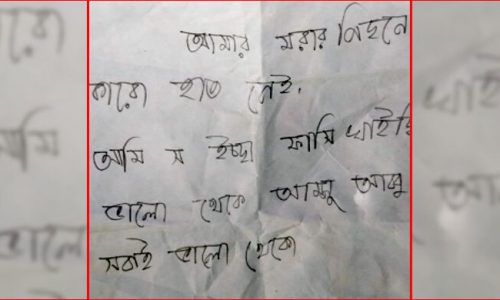 আমার মরার পিছনে
কারো হাত নেই.
আমি স ইচ্ছা ফাসি খাইছি
ভালো থেকে আম্মু আব্বু
সবাই ভালো থেকো